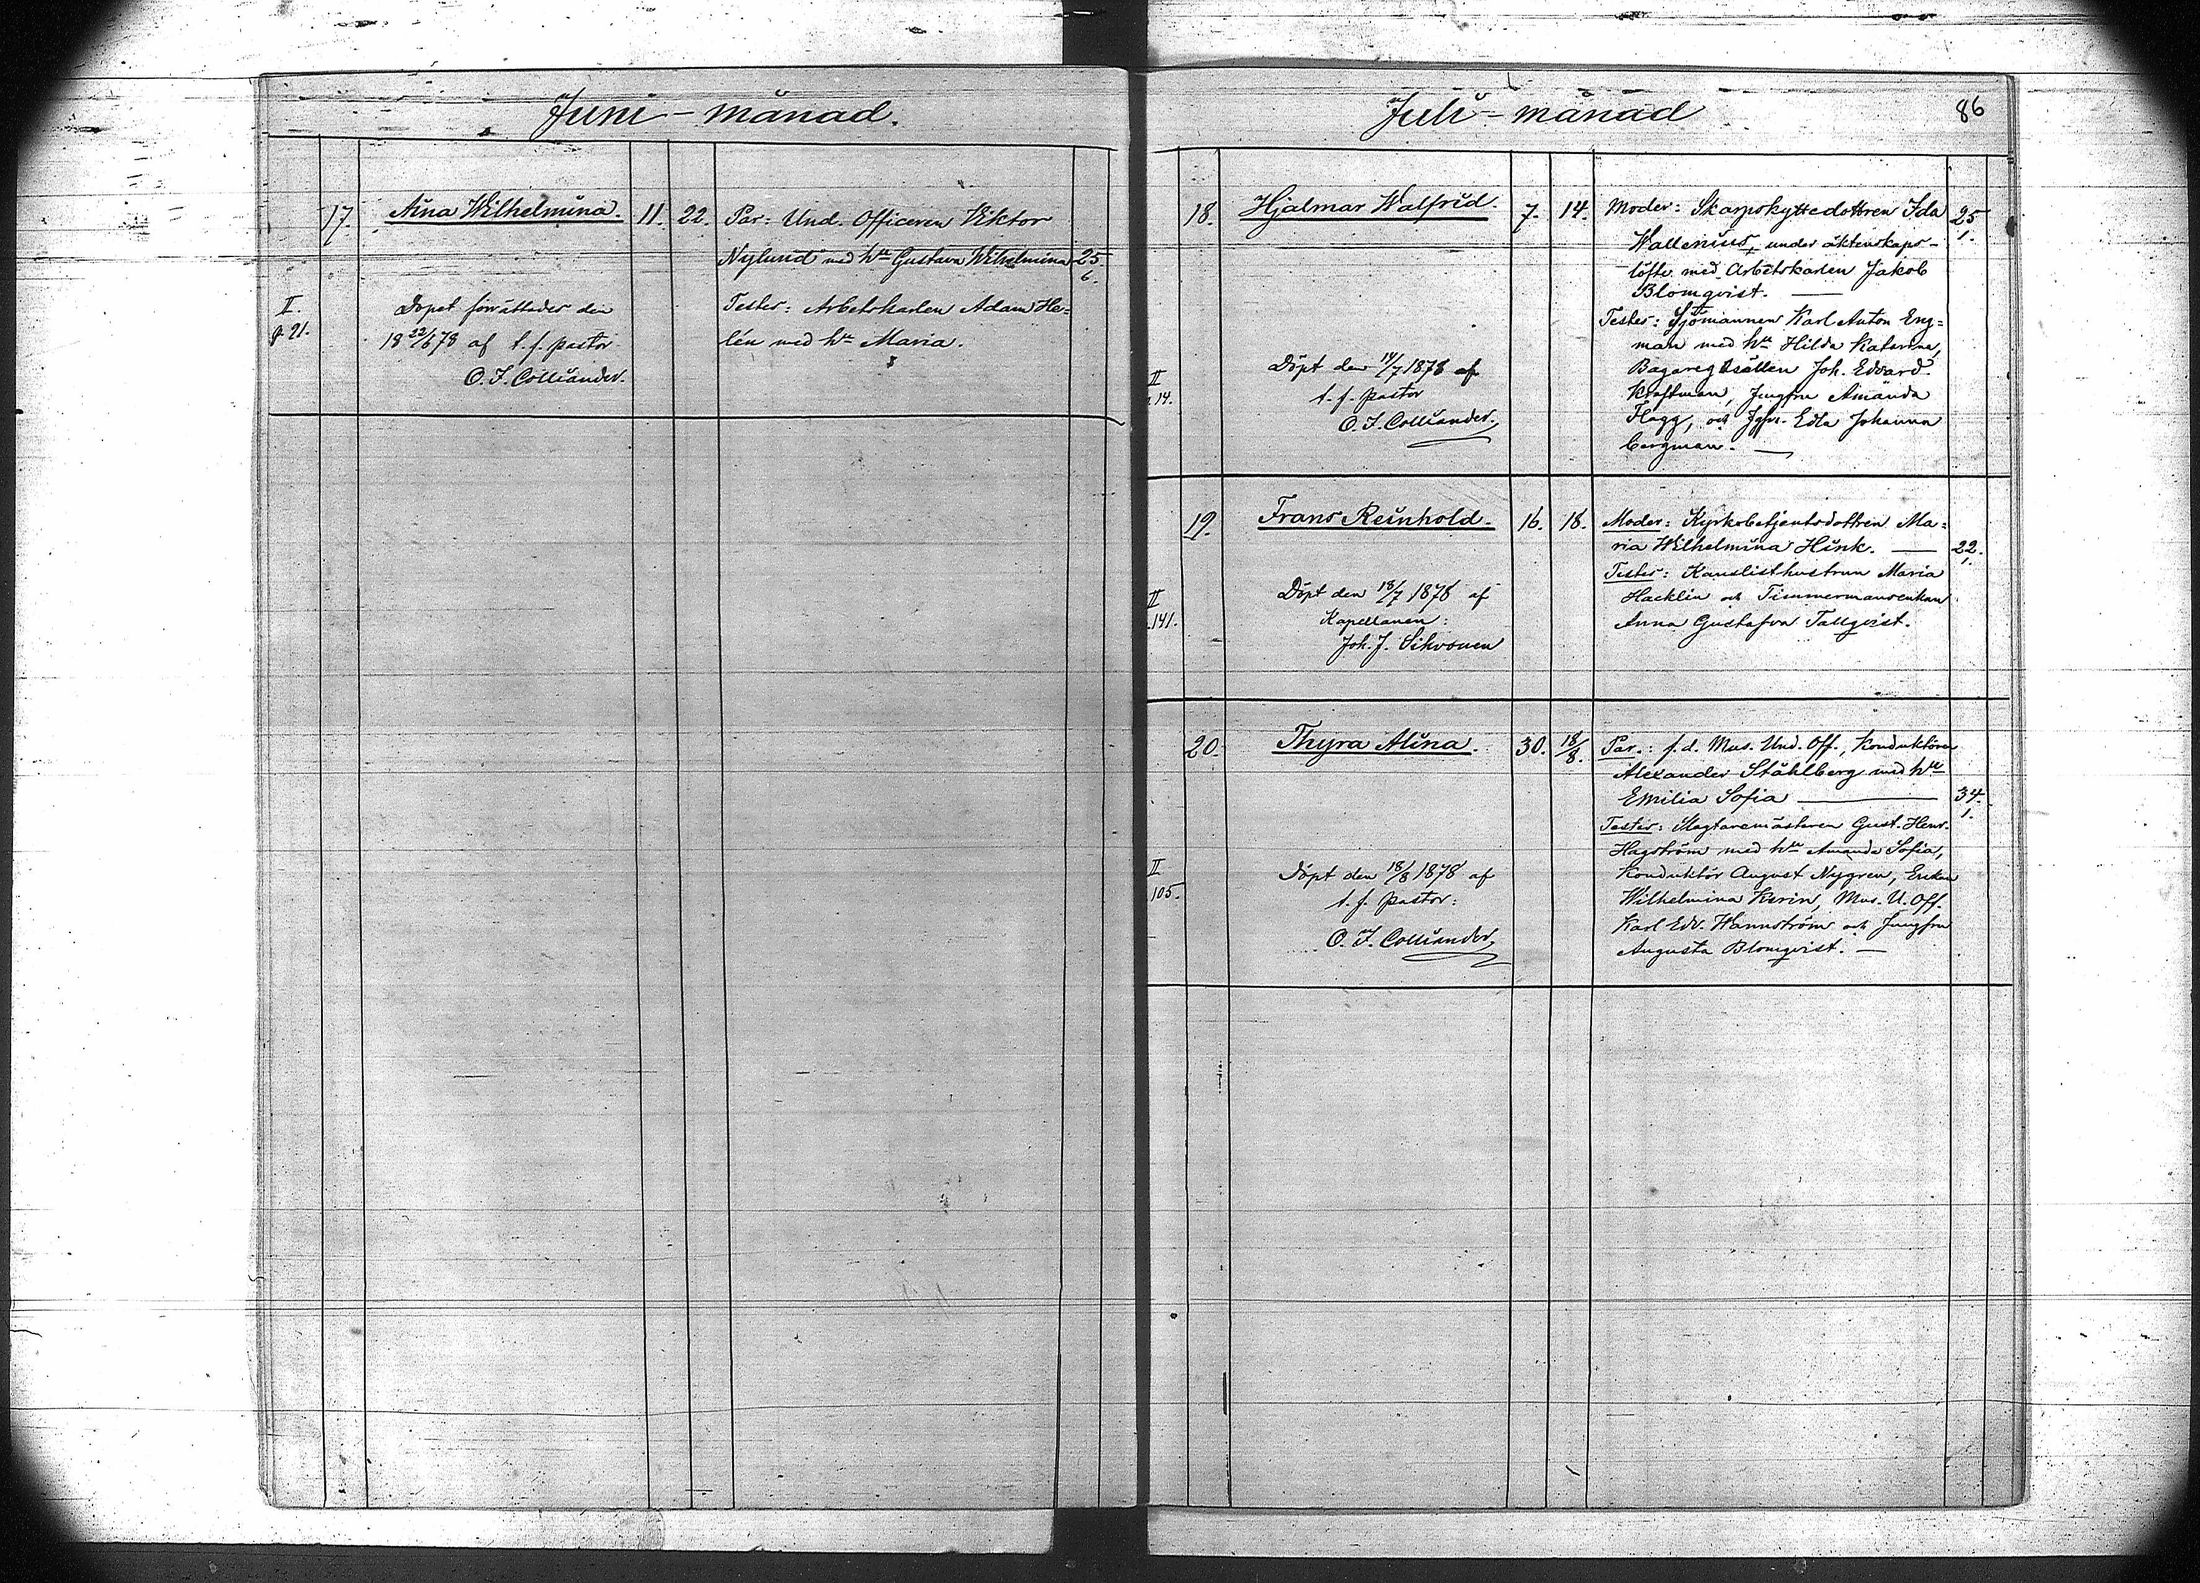 Juni-månad.
17. Aina Wilhelmina. 11. 22. Par: Und. Officeren Viktor
Nylund med hu Gustava Wilhelmina 25/6.
II. Dopet förättades den Testes: Arbetskarlen Adam He-
p 21. 18 22/6 78 af t. f. pastor lén med hu Maria.
O. F. Colliander.
Juli-månad 86
18. Hjalmar Walfrid. 7. 14. Moder: Skarpskyttedottren Ida 25/1.
Wallenius, under äktenskaps-
löfte med Arbetskarlen Jakob
Blomqvist. —
Testes: Sjömannen Karl Anton Eng-
man med hu Hilda Katarina,
Döpt den 14/7 1878 af Bagaregesällen Joh. Edvard
II 14. t. f. pastor Kraftman, Jungfru Amanda
O. F. Colliander. Flagg, och Jgfr. Edla Johanna
Bergman. —
19. Frans Reinhold. 16. 18. Moder: Kyrkobetjentsdottren Ma-
ria Wilhelmina Hink. — 22/1.
Testes: Kanslisthustrun Maria
II Döpt den 18/7 1878 af Hacklin och Timmermansenkan
141. Kapellanen: Anna Gustafva Tallqvist.
Joh. J. Sihvonen
20. Thyra Alina. 30. 18/8. Par.: f.d. Mus. Und. Off., Konduktören
Alexander Ståhlberg med hu
Emilia Sofia — 34/1.
Testes: Slagtaremästaren Gust. Henr.
Hagström med hu Amanda Sofia,
II Döpt den 18/8 1878 af Konduktör August Nygren, Enkan
105. t. f. pastor: Wilhelmina Mus. U. Off.
O. F. Colliander. Karl Edv. Wannström och Jungfru
Augusta Blomqvist. —